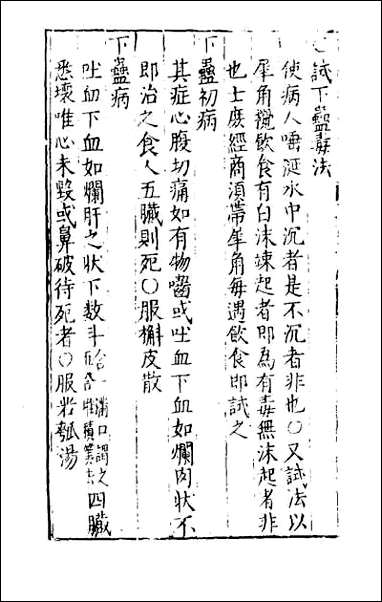 試下蠱毒法
使病人嚼涎水中沉者是不沉者非也〇又試法以
犀角攪飲食有白沫竦起者即為有毒無沫起者非
也士庶經商須帶犀角每遇飲食即試之
下蠱初病
其症心腹切痛如有物嚙或吐血下血如爛肉狀不
即治之食人五臟則死〇服槲皮散
下蠱病
吐血下血如爛肝之狀下数斗 四臟
悉壞唯心未毀或鼻破待死者〇服敗瓠湯